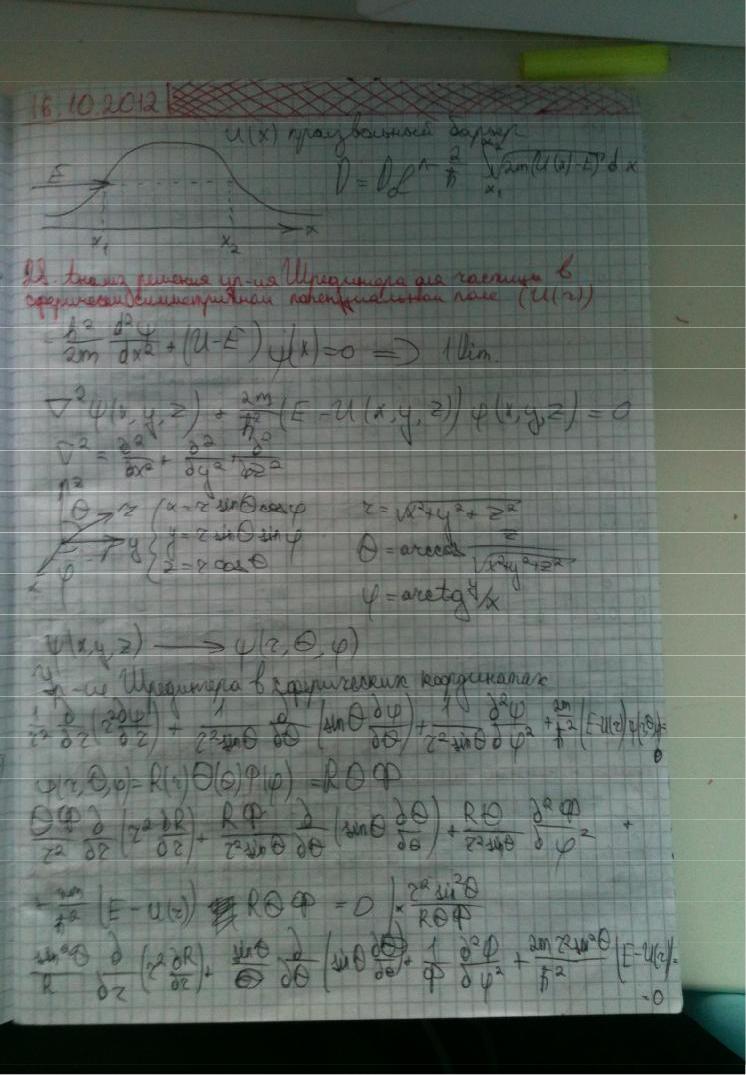 16.10.2012
U(x) произвольный барьер
E
D = D₀ℓ^ - 2/ħ ∫_{x₁}^{x₂} √2m(U(x)-E) dx
x₁ x₂ x
28. Анализ решения ур-ия Шредингера для частицы в
сферически симметричном потенциальном поле (U(r))
- ħ²/2m d²ψ/dx² + (U-E) ψ(x) = 0 => 1 dim.
∇²ψ(x, y, z) + 2m/ħ² (E - U(x, y, z)) ψ(x, y, z) = 0
∇² = ∂²/∂x² + ∂²/∂y² + ∂²/∂z²
z θ r y φ x
{ x = r sinθ cosφ
y = r sinθ sinφ
z = r cosθ
r = √x²+y²+z²
θ = arccos z/√x²+y²+z²
φ = arctg y/x
ψ(x,y,z) → ψ(r, θ, φ)
Ур-ие Шредингера в сферических координатах
1/r² ∂/∂r (r² ∂ψ/∂r) + 1/r² sinθ ∂/∂θ (sinθ ∂ψ/∂θ) + 1/r² sinθ ∂²ψ/∂φ² + 2m/ħ² (E-U(r)) ψ(r,θ,φ) = 0
ψ(r,θ,φ) = R(r)Θ(θ)Φ(φ) = RΘΦ
ΘΦ/r² ∂/∂r (r² ∂R/∂r) + RΦ/r² sinθ ∂/∂θ (sinθ ∂Θ/∂θ) + RΘ/r² sinθ ∂²Φ/∂φ² +
+ 2m/ħ² (E - U(r)) RΘΦ = 0 | × r² sin²θ/RΘΦ
sin²θ/R ∂/∂r (r² ∂R/∂r) + sinθ/Θ ∂/∂θ (sinθ ∂Θ/∂θ) + 1/Φ ∂²Φ/∂φ² + 2m r² sin²θ/ħ² (E-U(r)) = 0